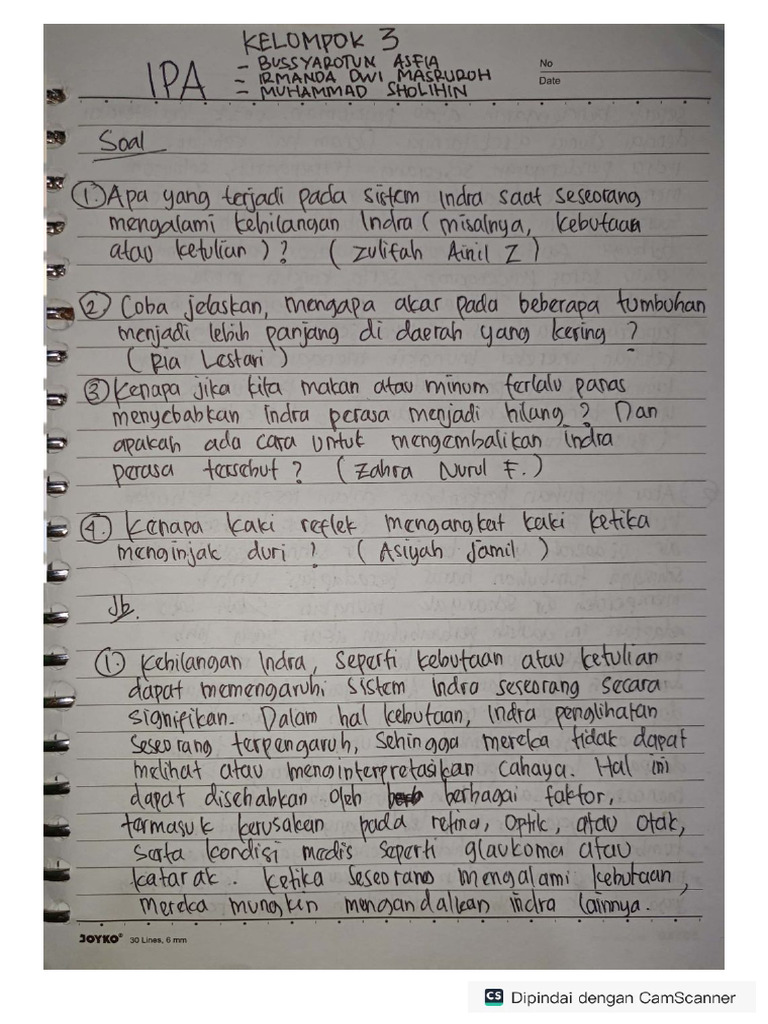 KELOMPOK 3
- BUSSYAROTUN ASFIA
IPA
- IRMANDA DWI MASRUROH
- MUHAMMAD SHOLIHIN
No
Date
Soal
1. Apa yang terjadi pada sistem indra saat seseorang
mengalami kehilangan Indra (misalnya, kebutaan
atau ketulian)? (Zulifah Ainil Z)
2 Coba jelaskan, mengapa akar pada beberapa tumbuhan
menjadi lebih panjang di daerah yang kering ?
(Ria Lestari)
3 Kenapa jika kita makan atau minum terlalu panas
menyebabkan Indra perasa menjadi hilang ? Dan
apakah ada cara untuk mengembalikan indra
perasa tersebut ? (Zahra Nurul F.)
4. Kenapa kaki reflek mengangkat kaki ketika
menginjak duri ? (Asiyah Jamil)
Jb.
1. Kehilangan Indra, seperti kebutaan atau ketulian
dapat memengaruhi sistem Indra seseorang secara
signifikan. Dalam hal kebutaan, Indra penglihatan
seseorang terpengaruh, sehingga mereka tidak dapat
melihat atau menginterpretasikan cahaya. Hal ini
dapat disebabkan oleh berbagai faktor,
termasuk kerusakan pada retina, optik, atau otak,
serta kondisi medis seperti glaukoma atau
katarak. Ketika seseorang mengalami kebutaan,
mereka mungkin mengandalkan indra lainnya.
JOYKO 30 Lines, 6 mm
CS Dipindai dengan CamScanner